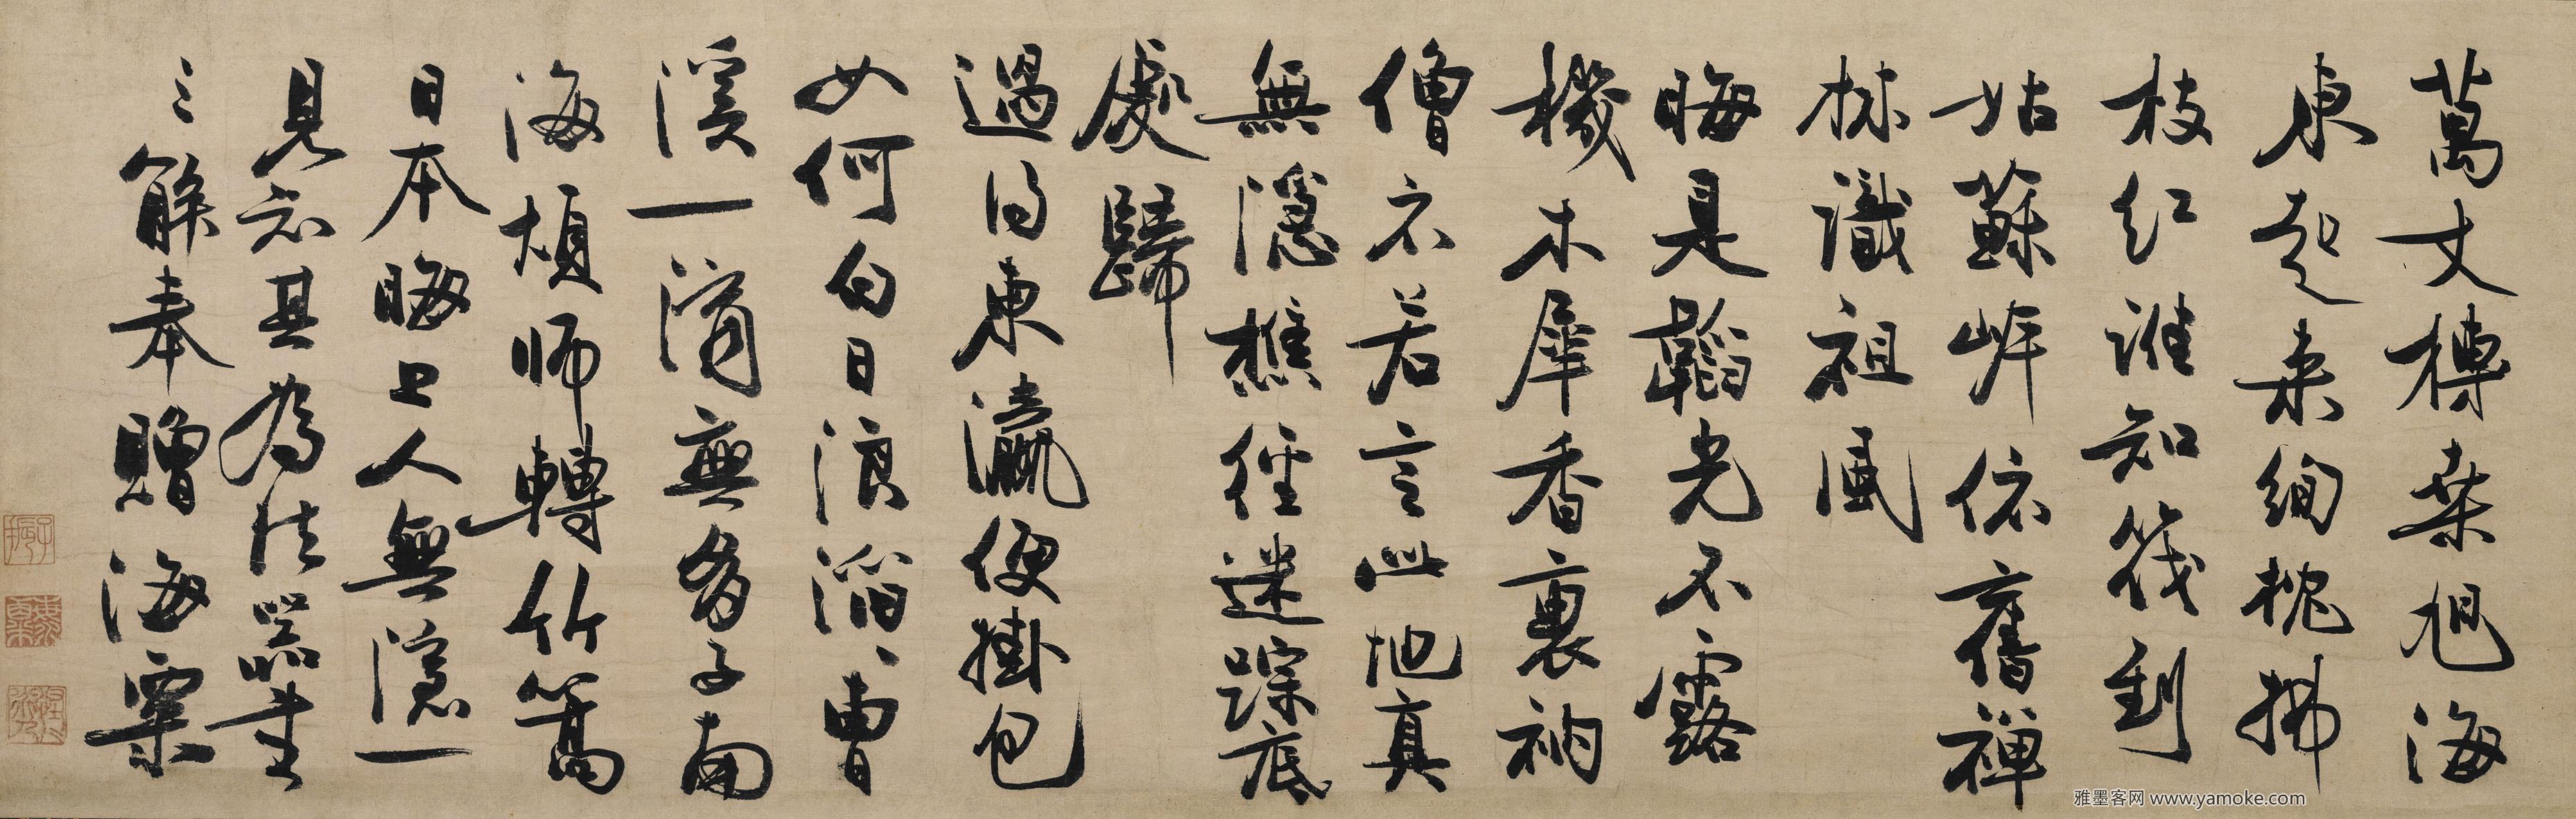 萬丈榑桒旭海
東起來絢枕拂
枝紅誰知筏到
姑蘇岸依舊禪
林識祖風
晦是韜光不露
機木犀香裏衲
僧不若言此地真
無隱樵徑迷踪底
處歸
過得東瀛便掛包
如何白日浪滔〻曹
溪一滴無多子南
海煩师轉竹篙
日本晦上人無隱一
見知其為法器書
三解奉贈海粟
雅墨客网 www.yamoke.com